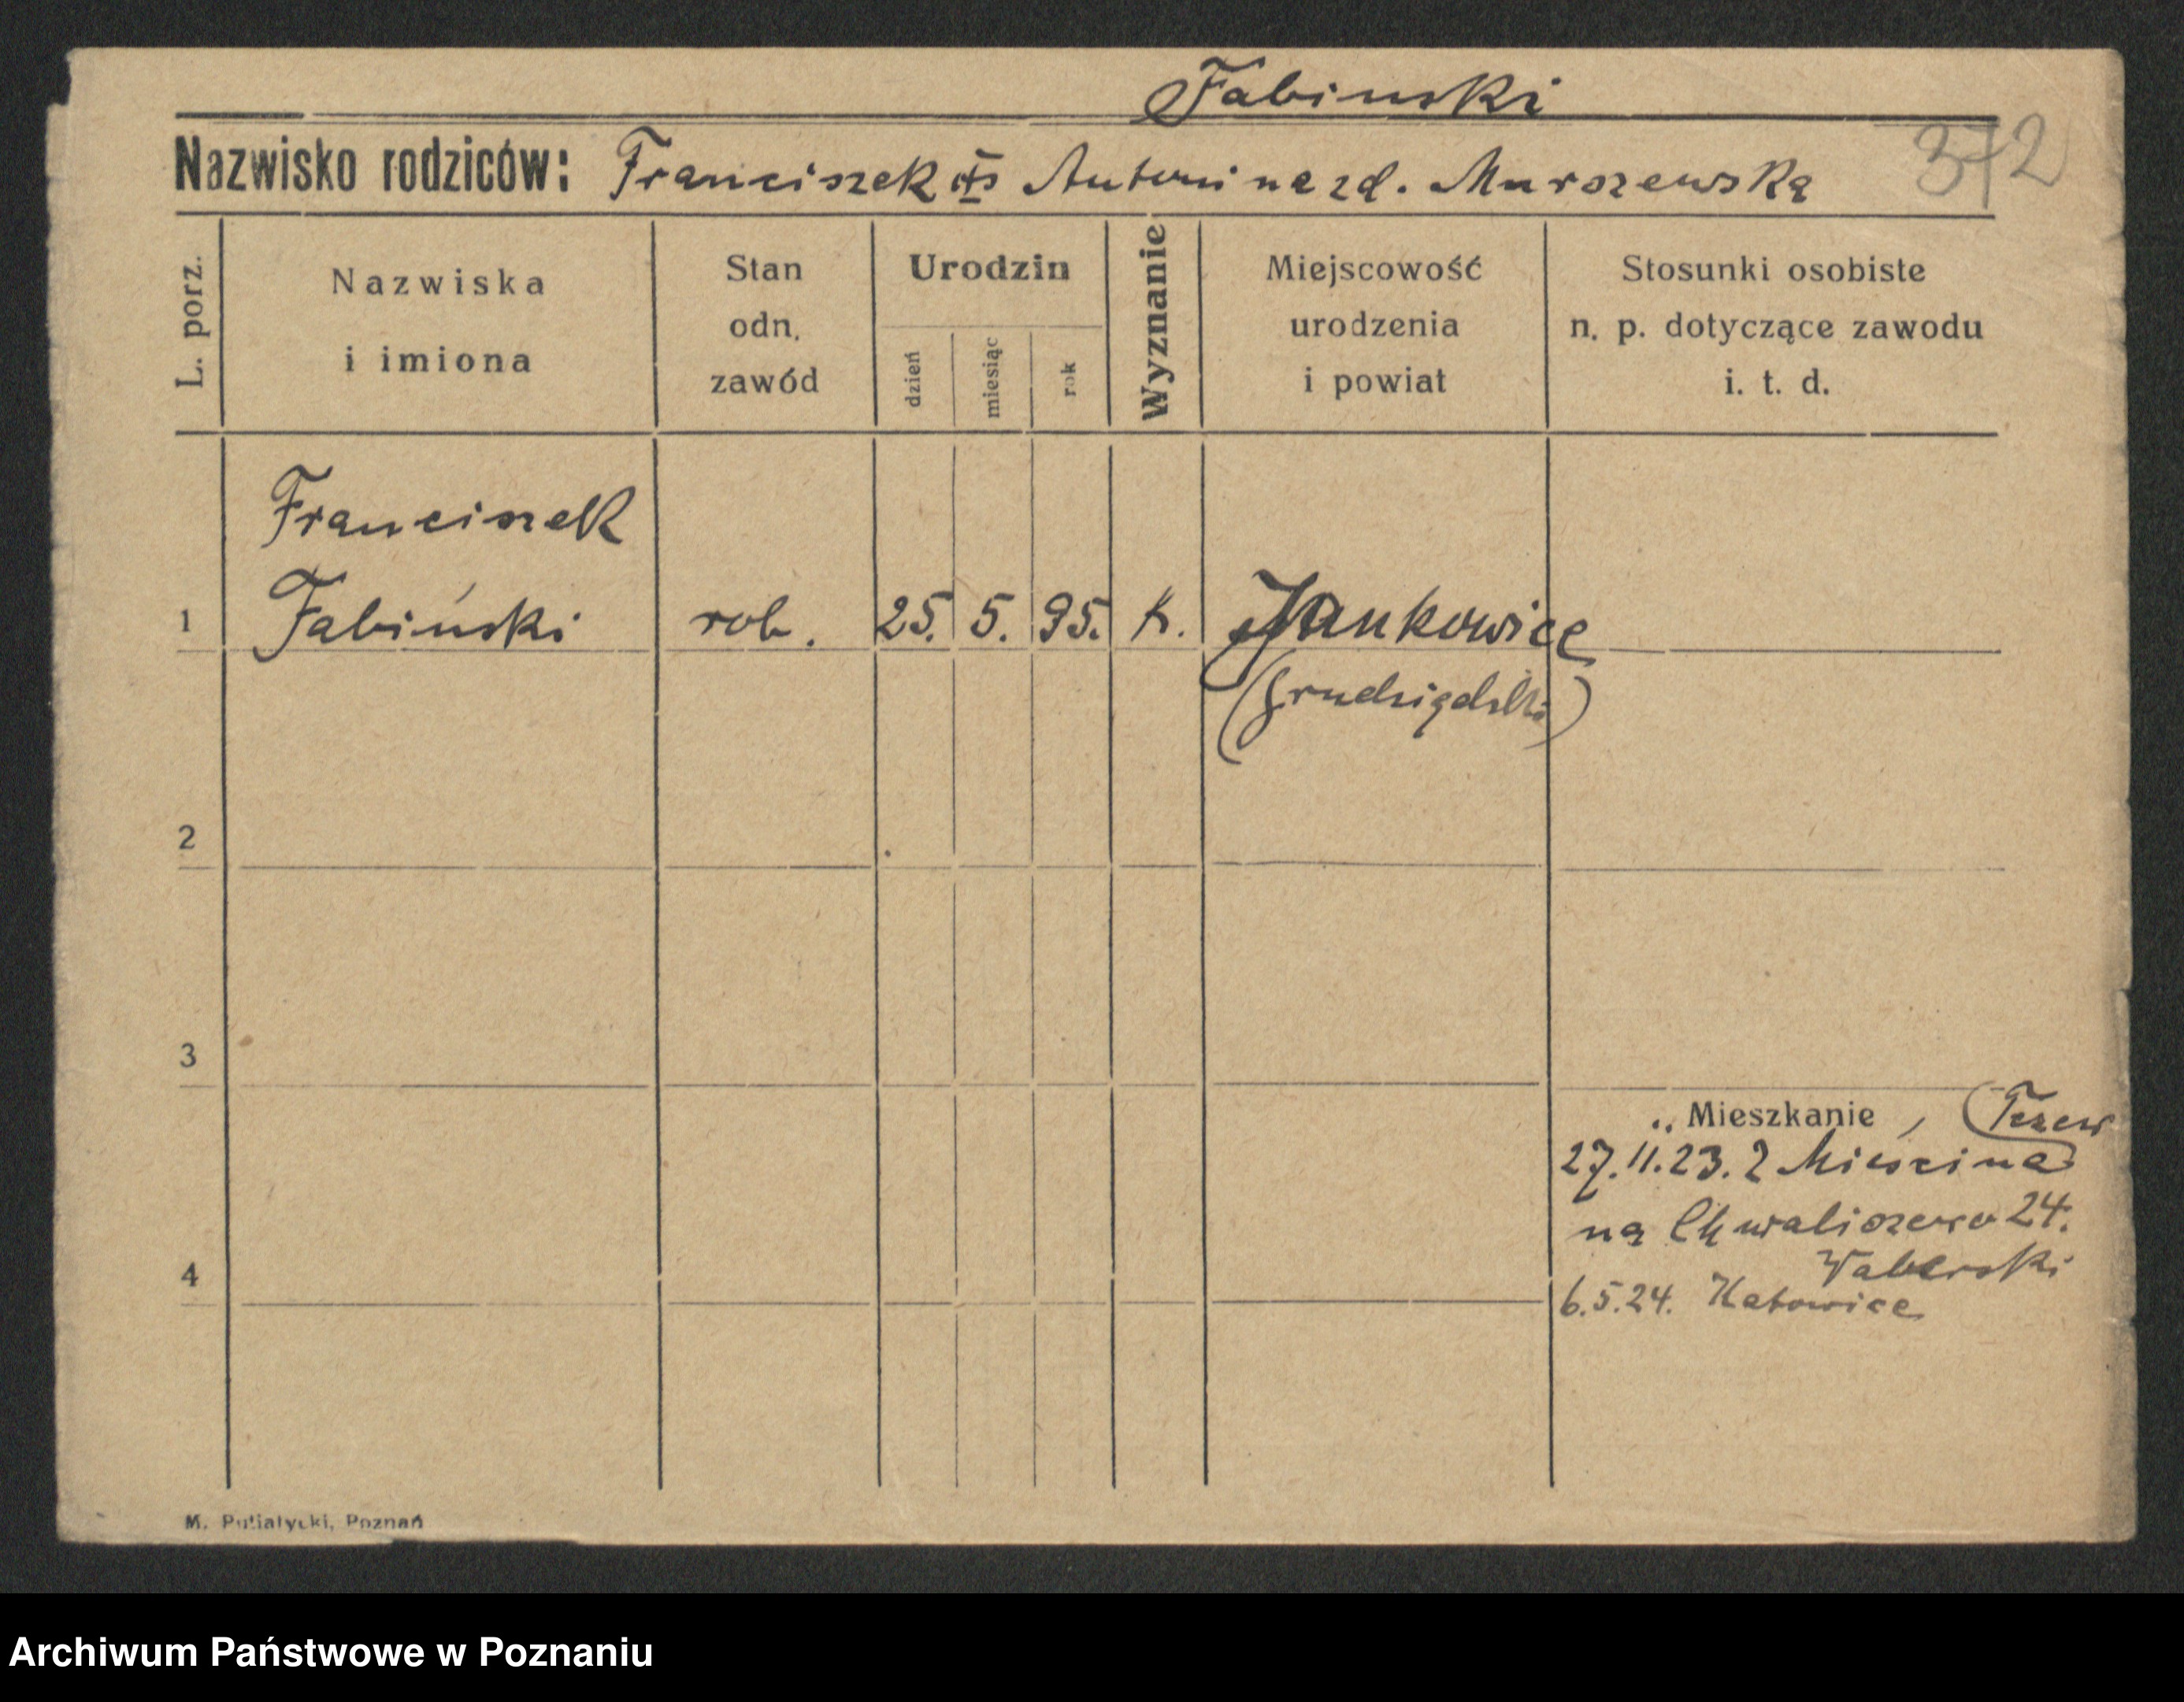 Fabinski
Nazwisko rodziców: Franciszek Antonina zd. Murszewska
372
L. porz.
Nazwiska
i imiona
Stan
odn.
zawód
Urodzin
dzień
miesiąc
rok
Wyznanie
Miejscowość
urodzenia
i powiat
Stosunki osobiste
n. p. dotyczące zawodu
i. t. d.
Franciszek
1 Fabiński rob. 25. 5. 95. k. Jankowice
(Grudziądzki)
2
3
Mieszkanie Tczew
27.11.23. z Mieścina
na Chwaliszewo 24.
Waberski
4
6.5.24. Katowice
M. Putiatycki, Poznań
Archiwum Państwowe w Poznaniu